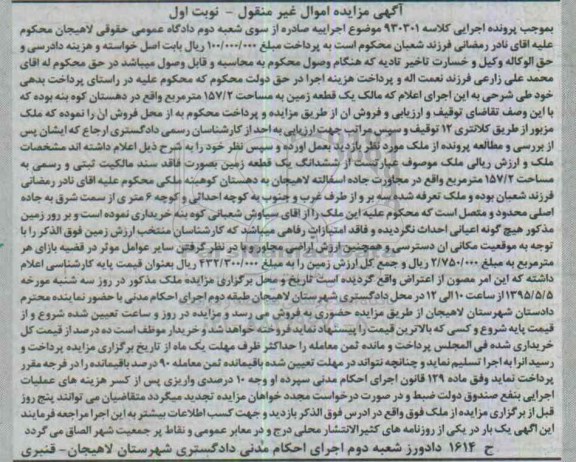 آگهی مزایده اموال غیر منقول - نوبت اول
بموجب پرونده اجرایی کلاسه ۹۳۰۳۰۱ موضوع اجراییه صادره از سوی شعبه دوم دادگاه عمومی حقوقی لاهیجان محکوم
علیه اقای نادر رمضانی فرزند شعبان محکوم است به پرداخت مبلغ ۱۰۰/۰۰۰/۰۰۰ ریال بابت اصل خواسته و هزینه دادرسی و
حق الوکاله وکیل و خسارت تاخیر تادیه که هنگام وصول محکوم به محاسبه و قابل وصول میباشد در حق محکوم له اقای
محمد علی زارعی فرزند نعمت اله و پرداخت هزینه اجرا در حق دولت محکوم که محکوم علیه در راستای پرداخت بدهی
خود طی شرحی به این اجرای اعلام که مالک یک قطعه زمین به مساحت ۱۵۷/۲ مترمربع واقع در دهستان کوه بنه بوده که
با این وصف تقاضای توقیف و ارزیابی و فروش ان از طریق مزایده و پرداخت محکوم به از محل فروش ان را نموده که ملک
مزبور از طریق کلانتری ۱۲ توقیف و سپس مراتب جهت ارزیابی به احد از کارشناسان رسمی دادگستری ارجاع که ایشان پس
از بررسی و مطالعه پرونده از ملک مورد نظر بازدید بعمل اورده و سپس نظر خود را به شرح ذیل اعلام داشته اند مشخصات
ملک و ارزش ریالی ملک موصوف عبارتست از ششدانگ یک قطعه زمین بصورت فاقد سند مالکیت ثبتی و رسمی به
مساحت ۱۵۷/۲ مترمربع واقع در مجاورت جاده اسفالته لاهیجان به دهستان کوهبنه ملکی محکوم علیه اقای نادر رمضانی
فرزند شعبان بوده و ملک تعرفه شده سه بر و از طرف غرب و جنوب به کوچه احداثی و کوچه ۶ متری از سمت شرق به جاده
اصلی محدود و متصل است که محکوم علیه این ملک را از اقای سیاوش شعبانی کوه بنه خریداری نموده است و بر روز زمین
مذکور هیچ گونه اعیانی احداث نگردیده و فاقد امتیازات رفاهی میباشد که کارشناسان منتخب ارزش زمین فوق الذکر را با
توجه به موقعیت مکانی ان دسترسی و همچنین ارزش اراضی مجاور و با در نظر گرفتن سایر عوامل موثر در قضیه بازای هر
مترمربع به مبلغ ۲/۷۵۰/۰۰۰ ریال و جمع کل ارزش زمین را به مبلغ ۴۳۲/۳۰۰/۰۰۰ ریال بعنوان قیمت پایه کارشناسی اعلام
داشته که این امر مصون از اعتراض واقع گردیده است تاریخ و محل برگزاری مزایده ملک مذکور در روز سه شنبه مورخه
۱۳۹۵/۵/۵ از ساعت ۱۰ الی ۱۲ در محل دادگستری شهرستان لاهیجان طبقه دوم اجرای احکام مدنی با حضور نماینده محترم
دادستان شهرستان لاهیجان از طریق مزایده حضوری به فروش می رسد و مزایده در روز و ساعت تعیین شده شروع و از
قیمت پایه شروع و کسی که بالاترین قیمت را پیشنهاد نماید فروخته خواهد شد و خریدار موظف است ده درصد از قیمت کل
خریداری شده فی المجلس پرداخت و مانده ثمن معامله را حداکثر ظرف مهلت یک ماه از تاریخ برگزاری مزایده پرداخت و
رسید انرا به اجرا تسلیم نماید و چنانچه نتواند در مهلت تعیین شده باقیمانده ثمن معامله ۹۰ درصد باقیمانده را در فرجه مقرر
پرداخت نماید وفق ماده ۱۲۹ قانون اجرای احکام مدنی سپرده او وجه ۱۰ درصدی واریزی پس از کسر هزینه های عملیات
اجرایی بنفع صندوق دولت ضبط و در صورت درخواست مجدد خواهان مزایده تجدید میگردد متقاضیان می توانند پنج روز
قبل از برگزاری مزایده از ملک فوق واقع در ادرس فوق الذکر بازدید و جهت کسب اطلاعات بیشتر به این اجرا مراجعه فرمایند
این اگهی یک بار در یکی از روزنامه های کثیرالانتشار محلی درج و در معابر عمومی و نقاط پر جمعیت شهر الصاق می گردد
ح ۱۶۱۴ دادورز شعبه دوم اجرای احکام مدنی دادگستری شهرستان لاهیجان- قنبری